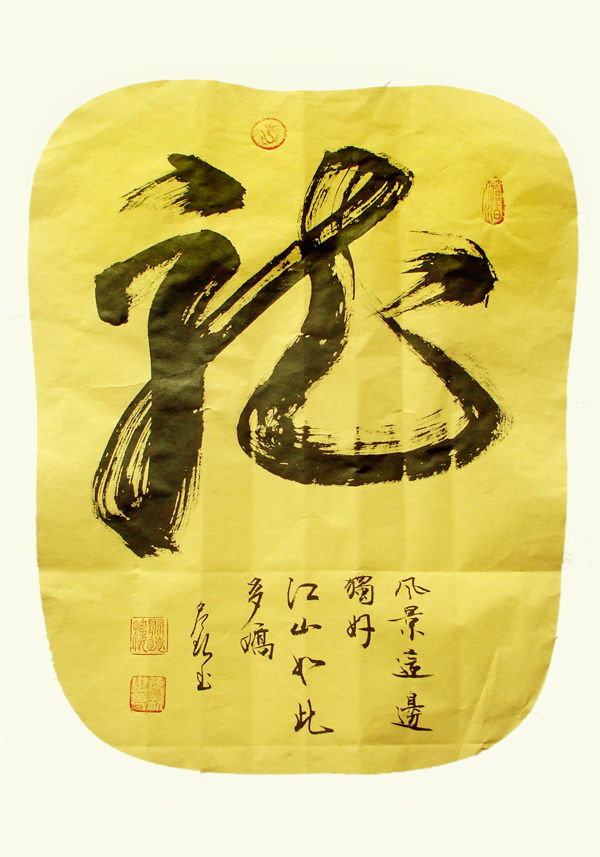 龍
風景這邊
獨好
江山如此
多嬌